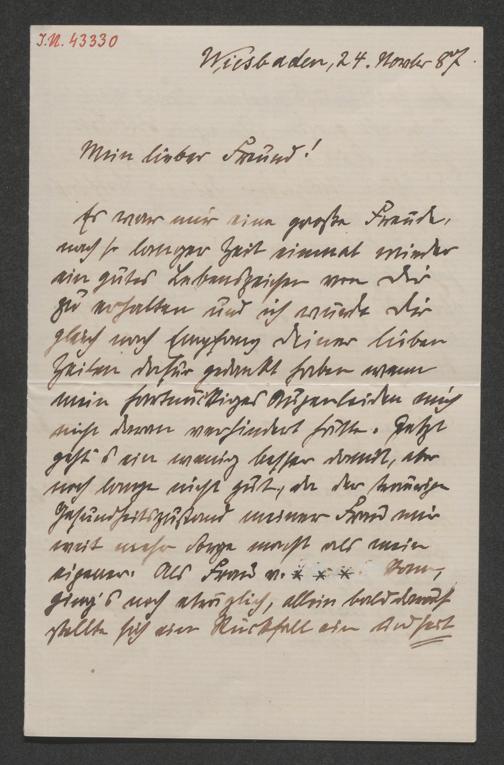 I.N. 43330
Wiesbaden, 24. Novbr 87.
Mein lieber Freund!
Es war mir eine große Freude,
nach so langer Zeit einmal wieder
ein gutes Lebenszeichen von Dir
zu erhalten und ich würde Dir
gleich nach Empfang Deiner lieben
Zeilen dafür gedankt haben wenn
mein hartnäckiges Augenleiden mich
nicht daran verhindert hätte. Jetzt
geht's ein wenig besser damit, aber
noch lange nicht gut, da der traurige
Gesundheitszustand meiner Frau mir
weit mehr Sorge macht als mein
eigener. Als Frau v. * * * kam,
ging's noch erträglich, allein bald darauf
stellte sich ein Rückfall ein und seit